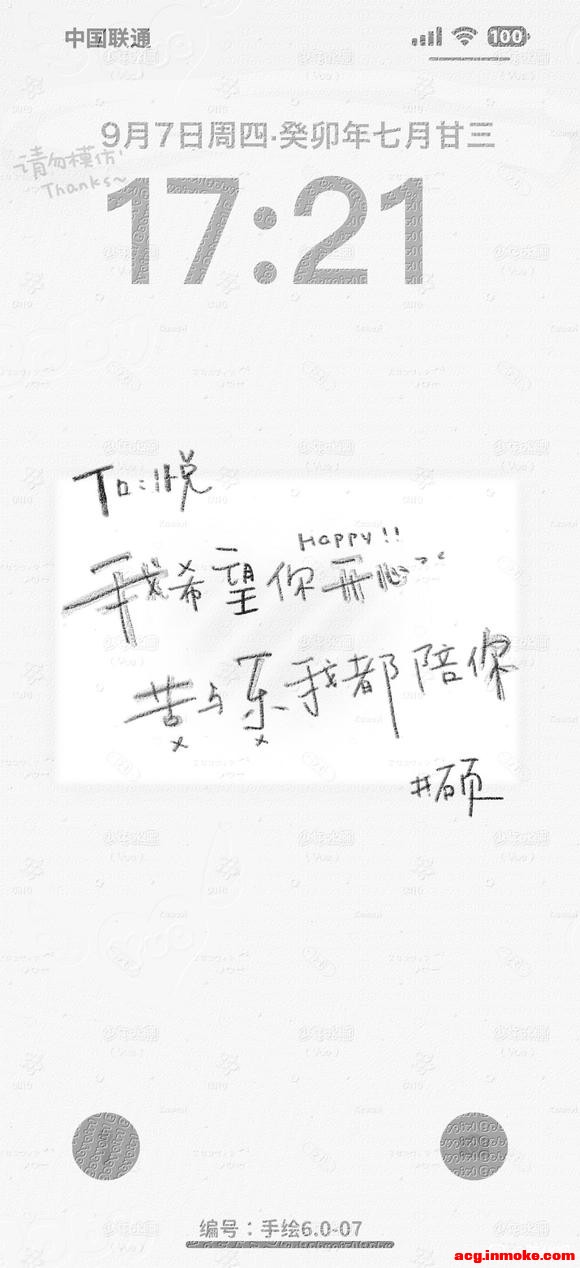 中国联通
100
9月7日周四·癸卯年七月廿三
请勿模仿
Thanks~
17:21
To:悦
Happy!!
我希望你开心
苦与乐我都陪你
#硕
编号：手绘6.0-07
acg.inmoke.com